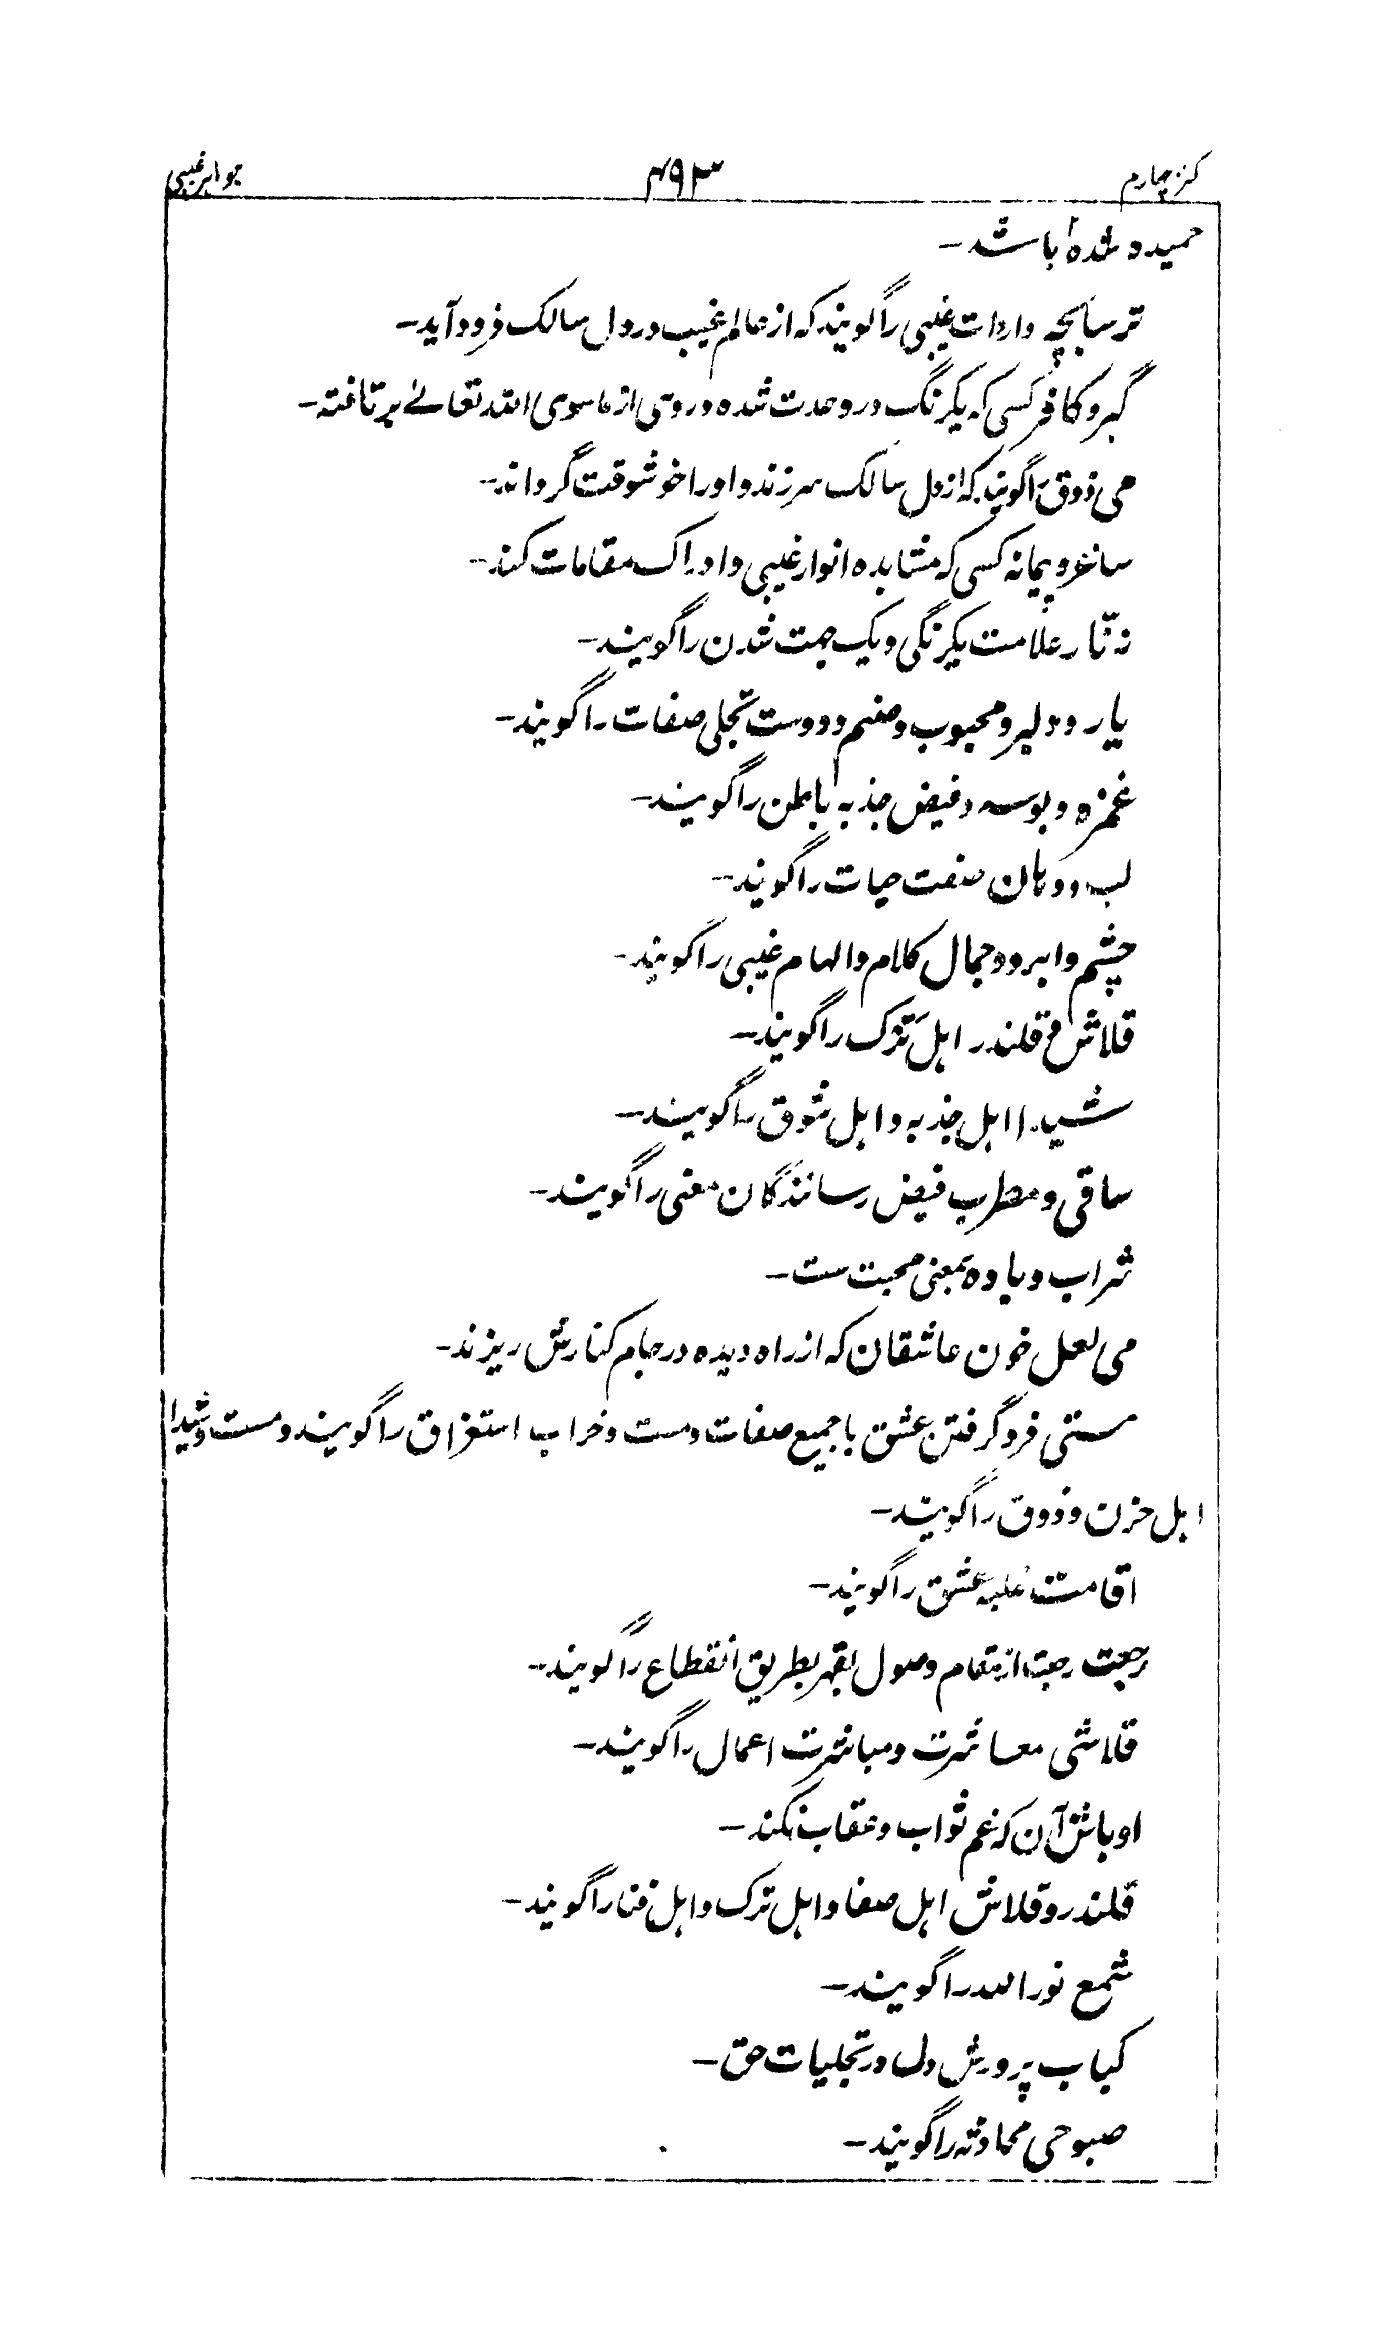 کنز چهارم ۴۹۳ جواهر غیبی
حمیده شده باشد۔
ترسابچه واردات غیبی را گویند که از عالم غیب در دل سالک فرود آید۔
گبر و کافر کسی که یکرنگ در وحدت شده و روی از ماسوی الله تعالے برتافته۔
می ذوق را گویند که از دل سالک سر زند و او را خوشوقت گرداند۔
ساغر و پیمانه کسی که مشاهده انوار غیبی و ادراک مقامات کند۔
زنّار علامت یکرنگی و یک جهت شدن را گویند۔
یار و دلبر و محبوب و صنم و دوست تجلی صفات را گویند۔
غمزه و بوسه و فیض جذبه باطن را گویند۔
لب و دهان صفت حیات را گویند۔
چشم و ابرو و جمال کلام و الهام غیبی را گویند۔
قلاش و قلندر اهل ترک را گویند۔
شیدا اهل جذبه و اهل شوق را گویند۔
ساقی و مطرب فیض رسانندگان معنی را گویند۔
شراب و باده بمعنی محبت ست۔
می لعل خون عاشقان که از راه دیده در جام کنارش ریزند۔
مستی فرو گرفتن عشق با جمیع صفات و مست و خراب استغراق را گویند و مست و شیدا
اهل حزن و ذوق را گویند۔
اقامت غلبه عشق را گویند۔
رجعت رجعت از مقام وصول بقهر بطریق انقطاع را گویند۔
قلاشی معاشرت و مباشرت اعمال را گویند۔
اوباش آن که غم ثواب و عقاب نکند۔
قلندر و قلاش اهل صفا و اهل ترک و اهل فنا را گویند۔
شمع نور الله را گویند۔
کباب پرورش دل در تجلیات حق۔
صبوحی محادثه را گویند۔